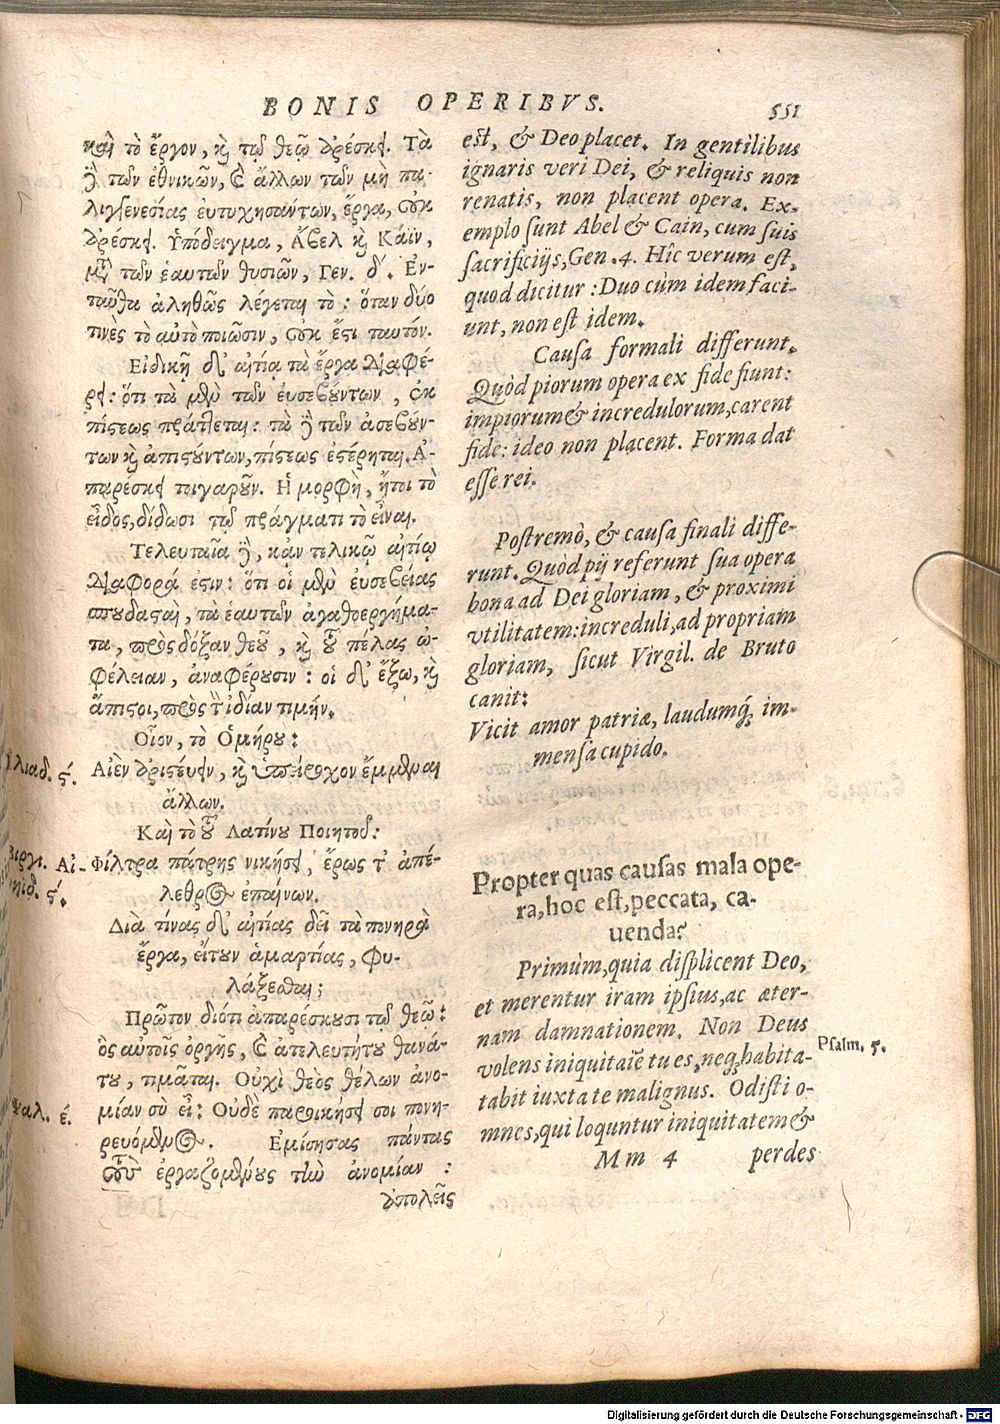 BONIS OPERIBVS.
551
καὶ τὸ ἔργον, κỳ τῷ θεῷ ἀρέσκει. Τὰ
ἢ τῶν ἐθνικῶν, ϗ ἄλλων τῶν μὴ πα-
λιγγενεσίας εὐτυχησάντων, ἔργα, οὐκ
ἀρέσκει. Ὑπόδειγμα, Ἄβελ κỳ Κάϊν,
μετὰ τῶν ἑαυτῶν θυσιῶν, Γεν. δ΄. Ἐν-
ταῦθα ἀληθῶς λέγεται τὸ: ὅταν δύο
τινὲς τὸ αὐτὸ ποιῶσιν, οὐκ ἔστι ταυτόν.
Εἰδικῇ δὲ αἰτίᾳ τὰ ἔργα διαφέ-
ρει: ὅτι τὰ μὲν τῶν εὐσεβούντων, ἐκ
πίστεως πράττεται: τὰ ἢ τῶν ἀσεβούν-
των κỳ ἀπιστούντων, πίστεως ἐστέρηται. Ἀ-
παρέσκει τοιγαροῦν. Ἡ μορφὴ, ἤτοι τὸ
εἶδος, δίδωσι τῷ πράγματι τὸ εἶναι.
Τελευταῖα ἢ, κἀν τελικῷ αἰτίῳ
διαφορά ἐστιν: ὅτι οἱ μὲν εὐσεβείας
σπουδασταὶ, τὰ ἑαυτῶν ἀγαθοεργήμα-
τα, πρὸς δόξαν θεοῦ, κỳ τοῦ πέλας ὠ-
φέλειαν, ἀναφέρουσιν: οἱ δὲ ἔξω, κỳ
ἄπιστοι, πρὸς τὴν ἰδίαν τιμήν.
Οἷον, τὸ Ὁμήρου:
Ἰλιαδ. ϛ΄.
Αἰὲν ἀριστεύειν, κỳ ὑπείροχον ἔμμεναι
ἄλλων.
Καὶ τὸ τοῦ Λατίνου Ποιητοῦ:
Βιργι. Αἰ-
νηϊδ. ϛ΄.
Φίλτρα πάτρης νικήσει, ἔρως τ' ἀπέ-
λεθρος ἐπαίνων.
Διὰ τίνας δὲ αἰτίας δεῖ τὰ πονηρὰ
ἔργα, εἴτουν ἁμαρτίας, φυ-
λάξεσθαι;
Πρῶτον διότι ἀπαρέσκουσι τῷ θεῷ:
ὃς αὐτοῖς ὀργῆς, ϗ ἀτελευτήτου θανά-
του, τιμᾶται. Οὐχὶ θεὸς θέλων ἀνο-
Ψαλ. έ.
μίαν σὺ εἶ: Οὐδὲ παροικήσει σοι πονη-
ρευόμενος. Ἐμίσησας πάντας
τοὺς ἐργαζομένους τὴν ἀνομίαν :
ἀπολεῖς
est, & Deo placet. In gentilibus
ignaris veri Dei, & reliquis non
renatis, non placent opera. Ex-
emplo sunt Abel & Cain, cum suis
sacrificijs, Gen. 4. Hîc verum est,
quod dicitur: Duo cùm idem faci-
unt, non est idem.
Causa formali differunt.
Quòd piorum opera ex fide fiunt:
impiorum & incredulorum, carent
fide: ideo non placent. Forma dat
esse rei.
Postremò, & causa finali diffe-
runt. Quòd pij referunt sua opera
bona ad Dei gloriam, & proximi
vtilitatem: increduli, ad propriam
gloriam, sicut Virgil. de Bruto
canit:
Vicit amor patriæ, laudumq́; im-
mensa cupido.
Propter quas causas mala ope-
ra, hoc est, peccata, ca-
uenda?
Primùm, quia displicent Deo,
et merentur iram ipsius, ac æter-
nam damnationem. Non Deus
Psalm. 5.
volens iniquitatē tu es, neq; habita-
tabit iuxta te malignus. Odisti o-
mnes, qui loquuntur iniquitatem &
Mm 4
perdes
Digitalisierung gefördert durch die Deutsche Forschungsgemeinschaft - DFG